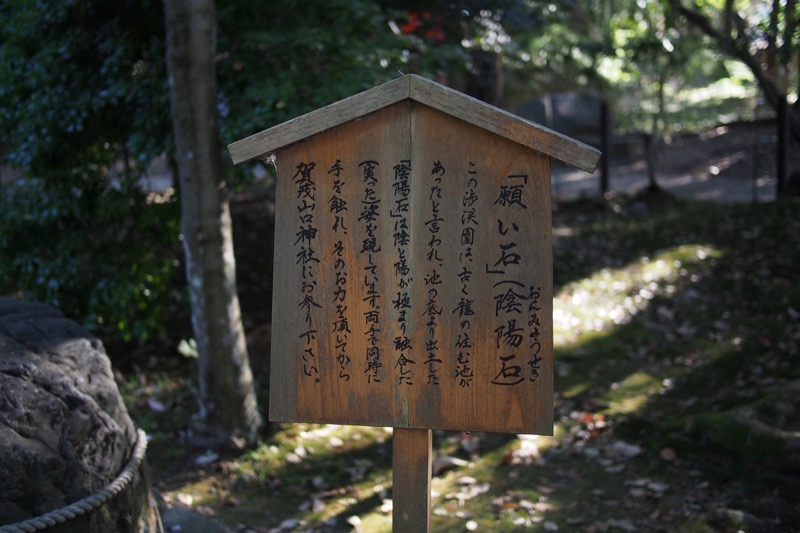 「願い石」(陰陽石)
おんみょうせき
この渉渓園は、古く龍の住む池が
あったと言われ、池の底より出土した
「陰陽石」は陰と陽が極まり融合した
(笑った)姿を現しています。両手で同時に
手を触れ、そのお力を頂いてから
賀茂山口神社にお参り下さい。